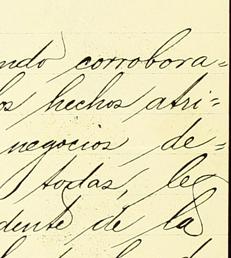 ndo corrobora=
os hechos atri=
negocios de=
todas, le
dente de la